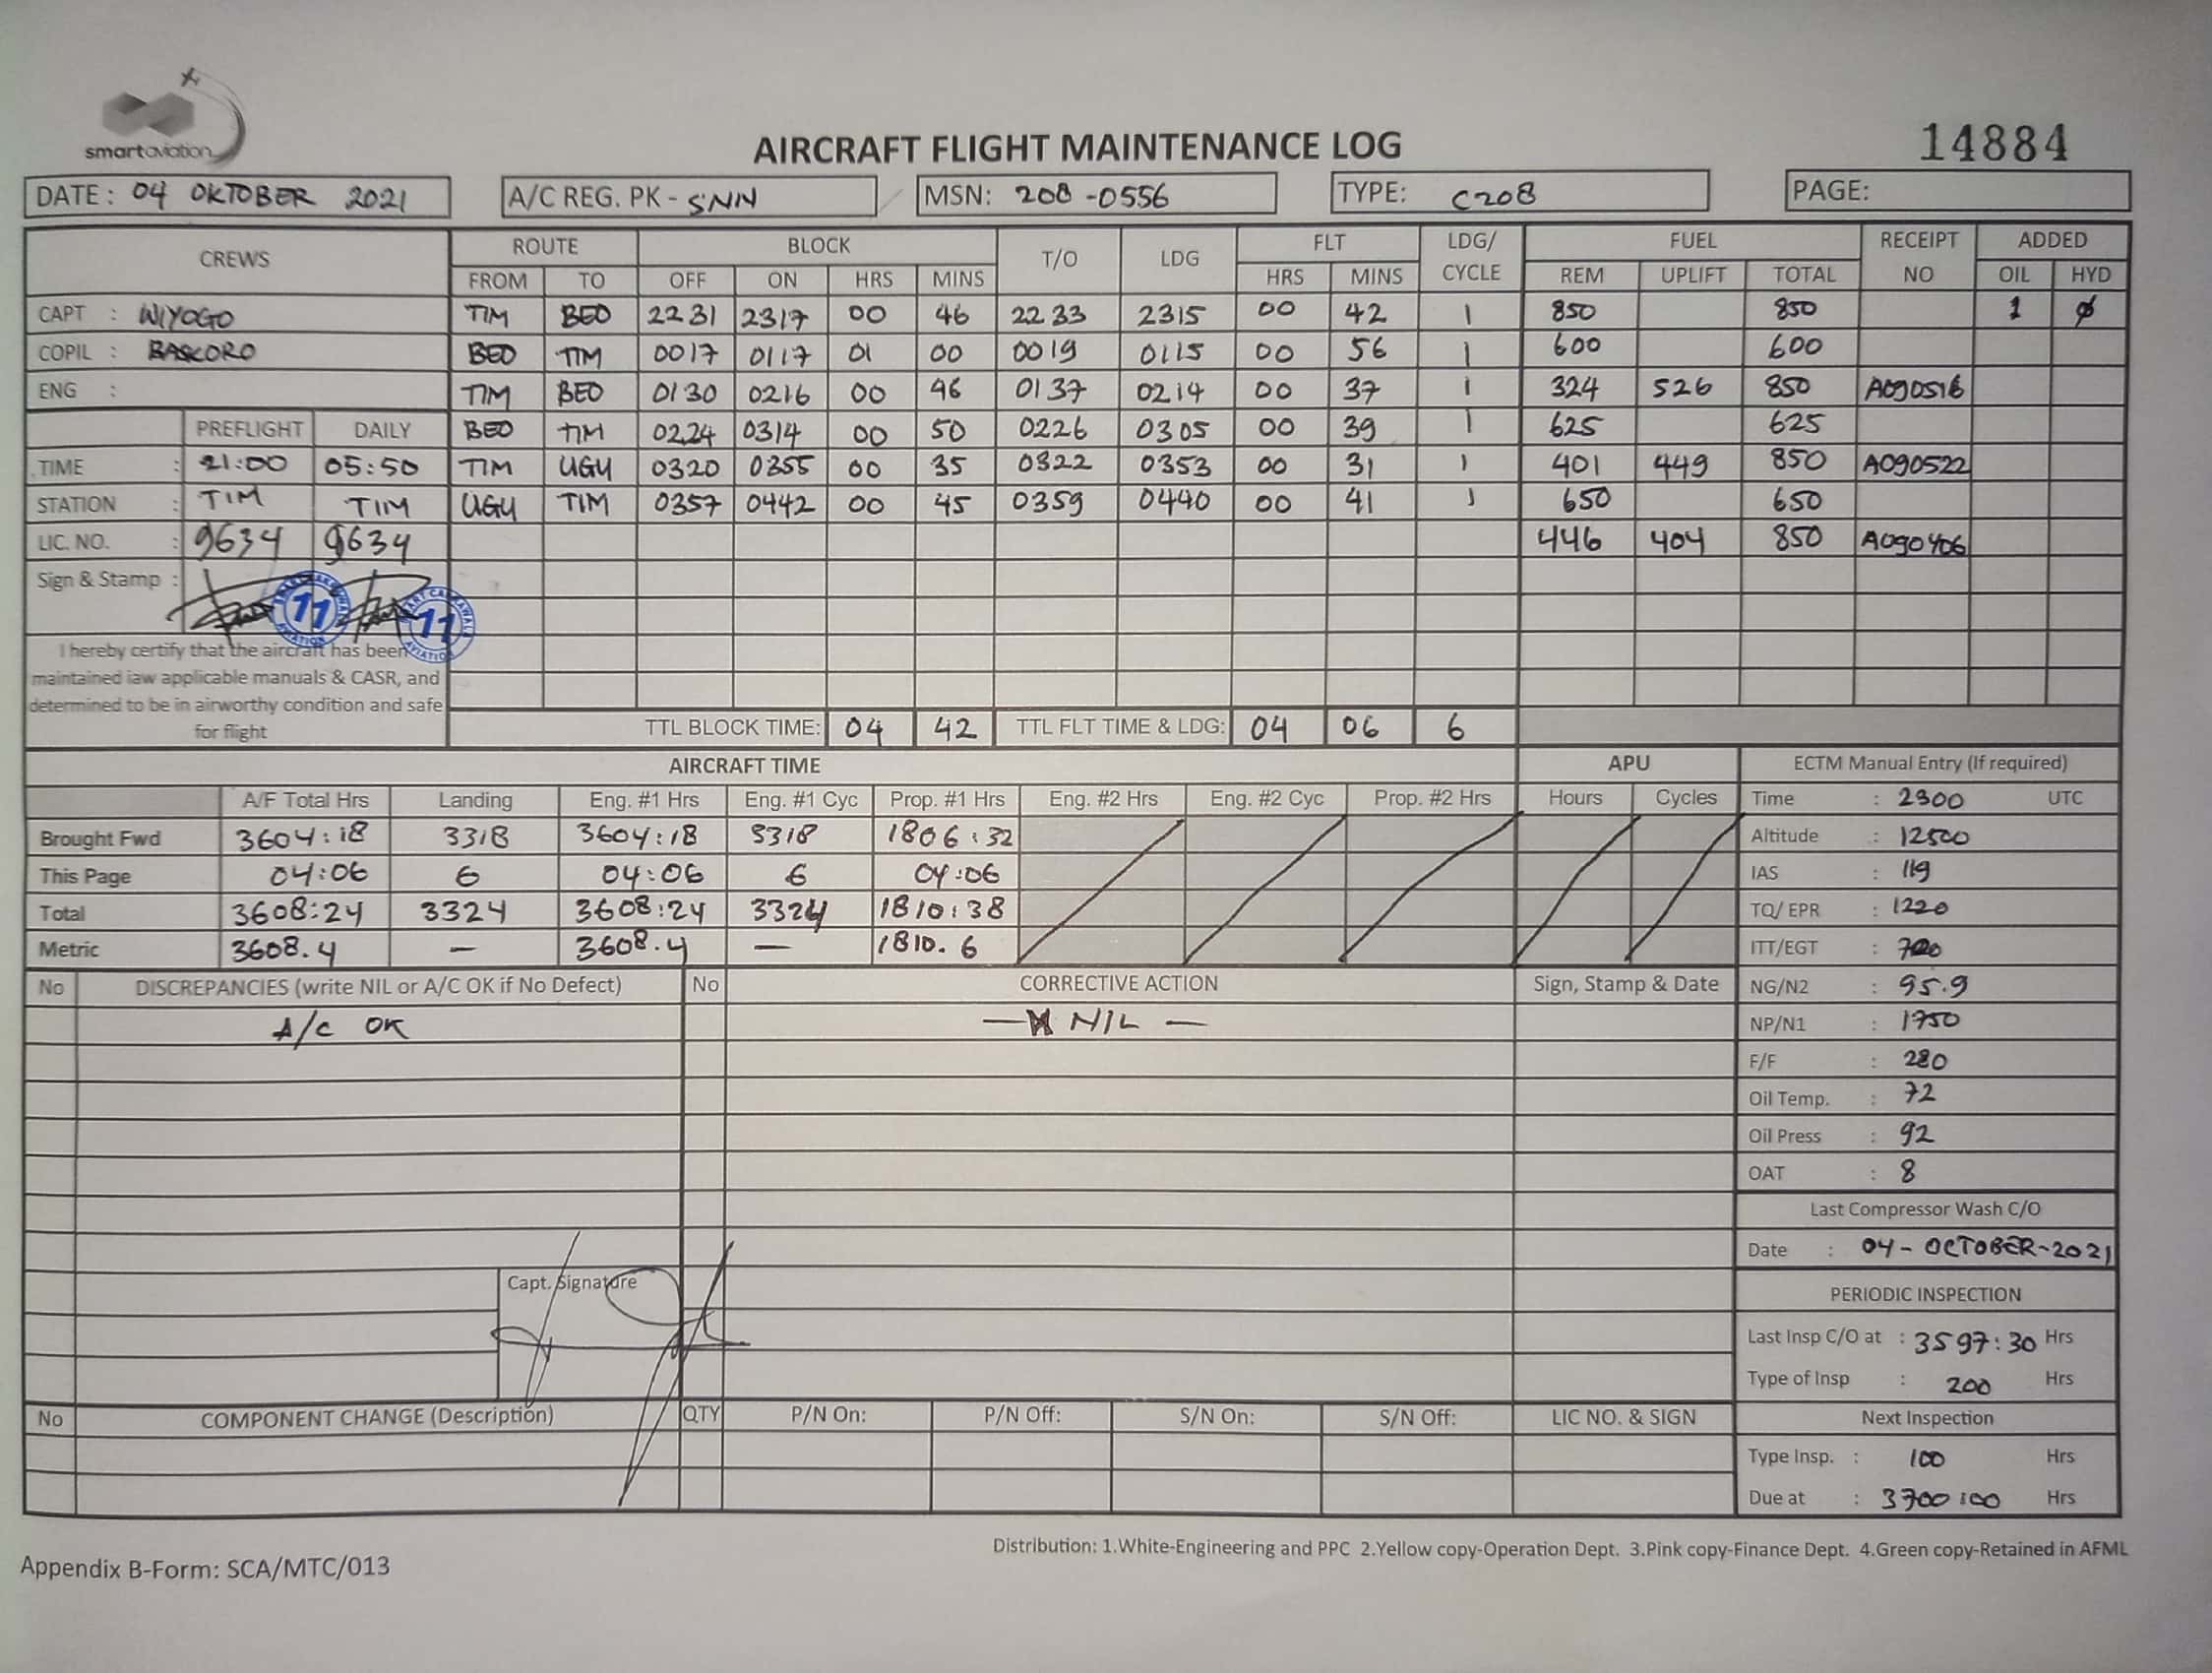 smartaviation
AIRCRAFT FLIGHT MAINTENANCE LOG
14884
DATE : 04 OKTOBER 2021
A/C REG. PK - SNN
MSN: 208-0556
TYPE: C208
PAGE:
CREWS ROUTE BLOCK T/O LDG FLT LDG/ CYCLE FUEL RECEIPT NO ADDED
FROM TO OFF ON HRS MINS HRS MINS REM UPLIFT TOTAL OIL HYD
CAPT : WIYOGO TIM BEO 2231 2317 00 46 2233 2315 00 42 1 850 850 1 ϕ
COPIL : BASKORO BEO TIM 0017 0117 01 00 0019 0115 00 56 1 600 600
ENG : TIM BEO 0130 0216 00 46 0137 0214 00 37 1 324 526 850 A090516
PREFLIGHT DAILY BEO TIM 0224 0314 00 50 0226 0305 00 39 1 625 625
TIME : 21:00 05:50 TIM UGU 0320 0355 00 35 0322 0353 00 31 1 401 449 850 A090522
STATION : TIM TIM UGU TIM 0357 0442 00 45 0359 0440 00 41 1 650 650
LIC. NO. : 9634 9634 446 404 850 A090406
Sign & Stamp :
11 11
AVIATION AVIATION
I hereby certify that the aircraft has been
maintained iaw applicable manuals & CASR, and
determined to be in airworthy condition and safe
for flight
TTL BLOCK TIME: 04 42 TTL FLT TIME & LDG: 04 06 6
AIRCRAFT TIME APU
A/F Total Hrs Landing Eng. #1 Hrs Eng. #1 Cyc Prop. #1 Hrs Eng. #2 Hrs Eng. #2 Cyc Prop. #2 Hrs Hours Cycles
Brought Fwd 3604:18 3318 3604:18 3318 1806:32
This Page 04:06 6 04:06 6 04:06
Total 3608:24 3324 3608:24 3324 1810:38
Metric 3608.4 — 3608.4 — 1810.6
ECTM Manual Entry (If required)
Time : 2300 UTC
Altitude : 12500
IAS : 119
TQ/ EPR : 1220
ITT/EGT : 720
NG/N2 : 95.9
NP/N1 : 1750
F/F : 280
Oil Temp. : 72
Oil Press : 92
OAT : 8
Last Compressor Wash C/O
Date : 04-OCTOBER-2021
PERIODIC INSPECTION
Last Insp C/O at : 3597:30 Hrs
Type of Insp : 200 Hrs
Next Inspection
Type Insp. : 100 Hrs
Due at : 3700:00 Hrs
No DISCREPANCIES (write NIL or A/C OK if No Defect) No CORRECTIVE ACTION Sign, Stamp & Date
A/C OK — NIL —
Capt. Signature
No COMPONENT CHANGE (Description) QTY P/N On: P/N Off: S/N On: S/N Off: LIC NO. & SIGN
Distribution: 1.White-Engineering and PPC 2.Yellow copy-Operation Dept. 3.Pink copy-Finance Dept. 4.Green copy-Retained in AFML
Appendix B-Form: SCA/MTC/013